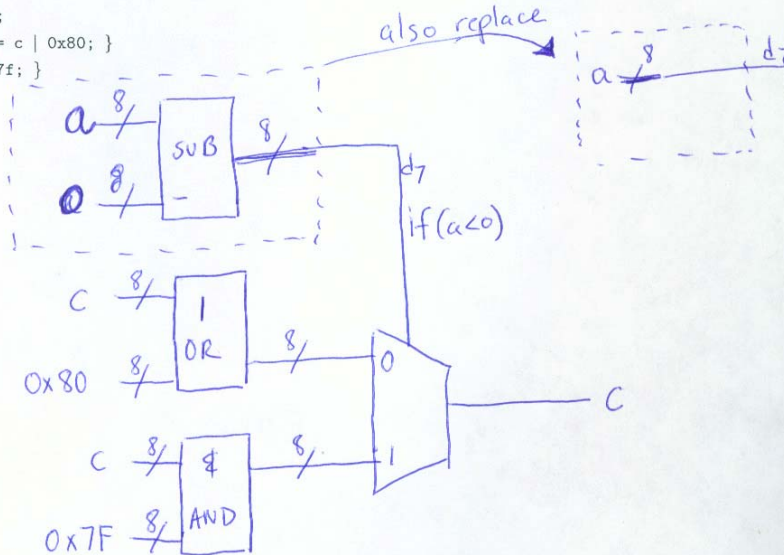 ;
= c | 0x80; }
7f; }
also replace
a 8
d7
a 8
SUB
8
0 8
-
d7
if(a<0)
C 8
|
OR
8
0
0x80 8
C
C 8
&
AND
8
1
0x7F 8